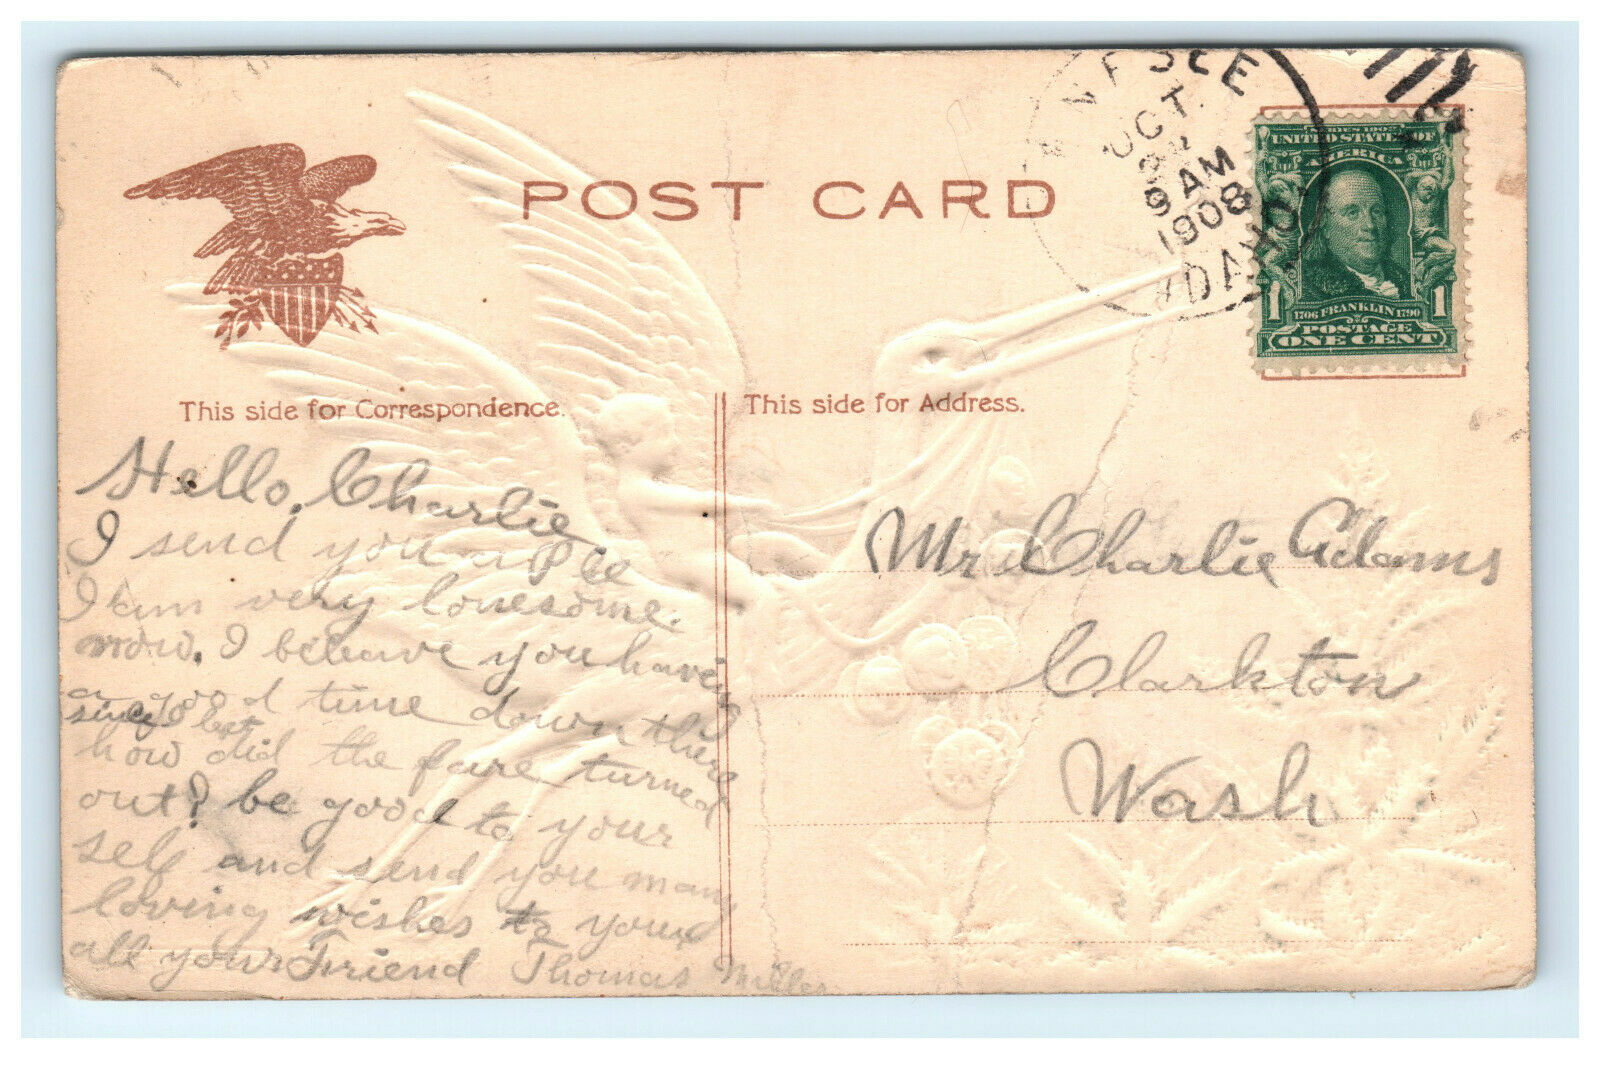 POST CARD
OCT.
9 AM
1908
IDAHO
SERIES 1902
UNITED STATES OF
AMERICA
1 1
1706 FRANKLIN 1790
POSTAGE
ONE CENT
This side for Correspondence.
Hello, Charlie
I send you a
I am very lonesome.
now. I beleave you having
a good time down there
how did the faire turned
out? be good to your
self and send you many
loving wishes to you
all your Friend Thomas Miller
This side for Address.
Mr Charlie Adams
Clarkton
Wash